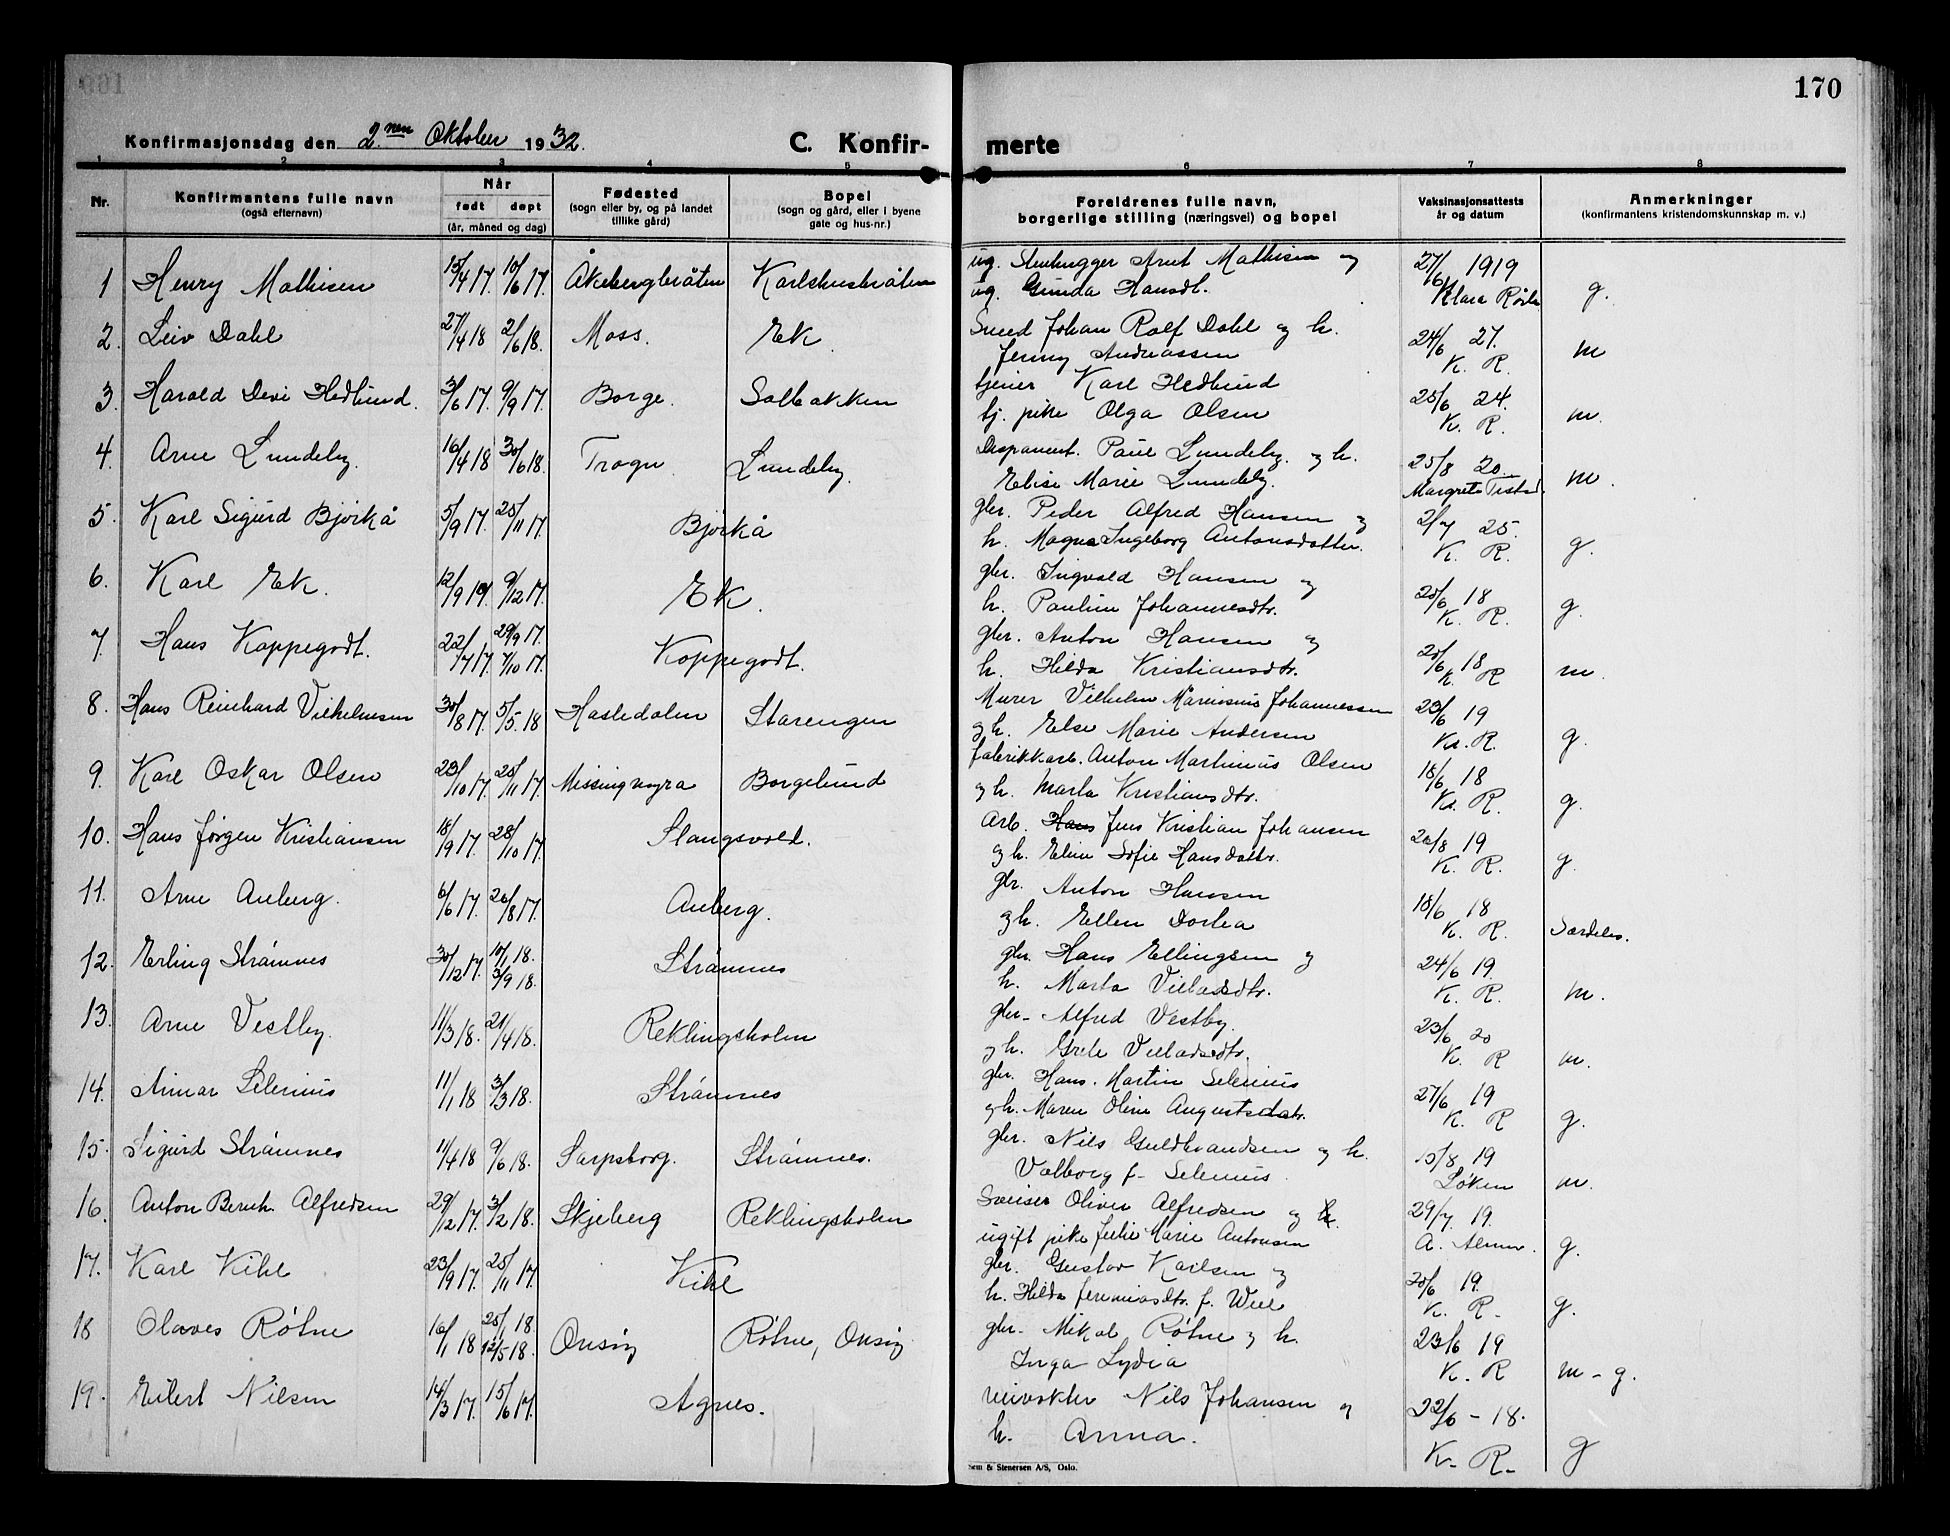 170
Konfirmasjonsdag den 2.nen Oktober 1932.
C. Konfir-
merte
1 2 3 4 5 6 7 8
Nr.
Konfirmantens fulle navn
(også efternavn)
Når
født døpt
(år, måned og dag)
Fødested
(sogn eller by, og på landet
tillike gård)
Bopel
(sogn og gård, eller i byene
gate og hus-nr.)
Foreldrenes fulle navn,
borgerlige stilling (næringsvei) og bopel
Vaksinasjonsattests
år og datum
Anmerkninger
(konfirmantens kristendomskunnskap m. v.)
1 Henry Mathisen 15/4 17. 10/6 17. Åkebergbråten Karlshusbråten ug. Stenhugger Arnt Mathisen og 27/6 1919
ug. Gunda Hansdt. Klara g.
2. Leiv Dahl 27/4 18 2/6 18. Moss. Ek Smed Johan Rolf Dahl og h. 24/6 27.
Jenny Andreassen K. R. m
3. Harald Hedlund. 3/6 17. 9/9 17. Borge. Solbakken tjener Karl Hedlund 25/6 24.
tj. pike Olga Olsen K. R. m.
4. Arne Lundeby. 16/4 18 30/6 18. Trogn Lundeby. Paul Lundeby. og h. 25/8 20.
Elise Marie Lundeby. Margrete m.
5. Karl Sigurd Bjørkå 5/9 17. 25/11 17. Bjørkå gbr. Peder Alfred Hansen og 2/7 25.
h. Magna Ingeborg Antonsdatter. K. R. g.
6. Karl Ek. 12/9 17. 9/12 17. Ek. gbr. Ingvald Hansen og 20/6 18
h. Pauline Johannesdtr. K. R. g.
7. Hans Koppegodt. 22/7 17. 29/9 17. 7/10 17. Koppegodt. gbr. Anton Hansen og 20/6 18
h. Hilda Kristiansdtr. K. R m.
8. Hans Reinhard Vilhelmsen 30/8 17. 5/5. 18 Hasledalen Starengen Murer Vilhelm Marinius Johannessen 23/6 19
og h. Else Marie Andersen Kl. R. g.
9. Karl Oskar Olsen 23/10 17. 25/11 17. Missingmyra Borgelund fabrikkarb. Anton Martinius Olsen 18/6 18
og h. Marta Kristiansdtr. Kl. R. g.
10. Hans Jørgen Kristiansen 18/9 17. 28/10 17. Slangsvold. Arb. Hans Jens Kristian Johansen 20/8 19
og h. Eline Sofie Hansdattr. K. R. g.
11. Arne Auberg. 6/6 17. 26/8 17. Auberg. gbr. Anton Hansen 18/6 18
og h. Ellen Dortea K. R. Særdeles.
12. Erling Strømnes 30/12 17. 10/1 18. 3/9 18. Strømnes gbr. Hans Ellingsen og 24/6 19.
h. Marta Villadsdtr. K. R. m.
13. Arne Vestby. 11/3 18. 21/4 18. Reklingsholm gbr. Alfred Vestby. 23/6 20
og h. Grete Villadsdtr. K. R m.
14. Aimar Selenius 11/1 18 3/3 18. Strømnes gbr. Hans. Martin Selenius 27/6 19
og h. Maren Oline Augustsdatr. K. R g.
15. Sigurd Strømnes 11/4 18 9/6 18. Sarpsborg. Strømnes. gbr. Nils Guldbrandsen og h. 15/8 19
Valborg f. Selenius. Løken m.
16. Anton Bernh. Alfredsen 29/12 17. 3/2 18. Skjeberg Reklingsholm Oliver Alfredsen og h. 29/7. 19.
ugift pike Julie Marie Antonsen A. g.
17. Karl Kihl 23/9 17. 25/11 17. Kihl gbr. Gustav Karlsen og 20/6 19.
h. Hilda Jeremiasdtr. f. Wiel K. R. g.
18 Olaves Røtne 16/1 18 25/1 18 12/5 18. Onsøy Røtne, Onsøy gbr. Mikal Røtne og h. 23/6 19
Inga Lydia K. R m - g.
19. Eilert Nilsen 14/3 17. 15/6 17. Agnes. veivokter Nils Johansen og 22/6 - 18.
h. Anna. K. R. g
Sem & Stenersen A/S, Oslo.